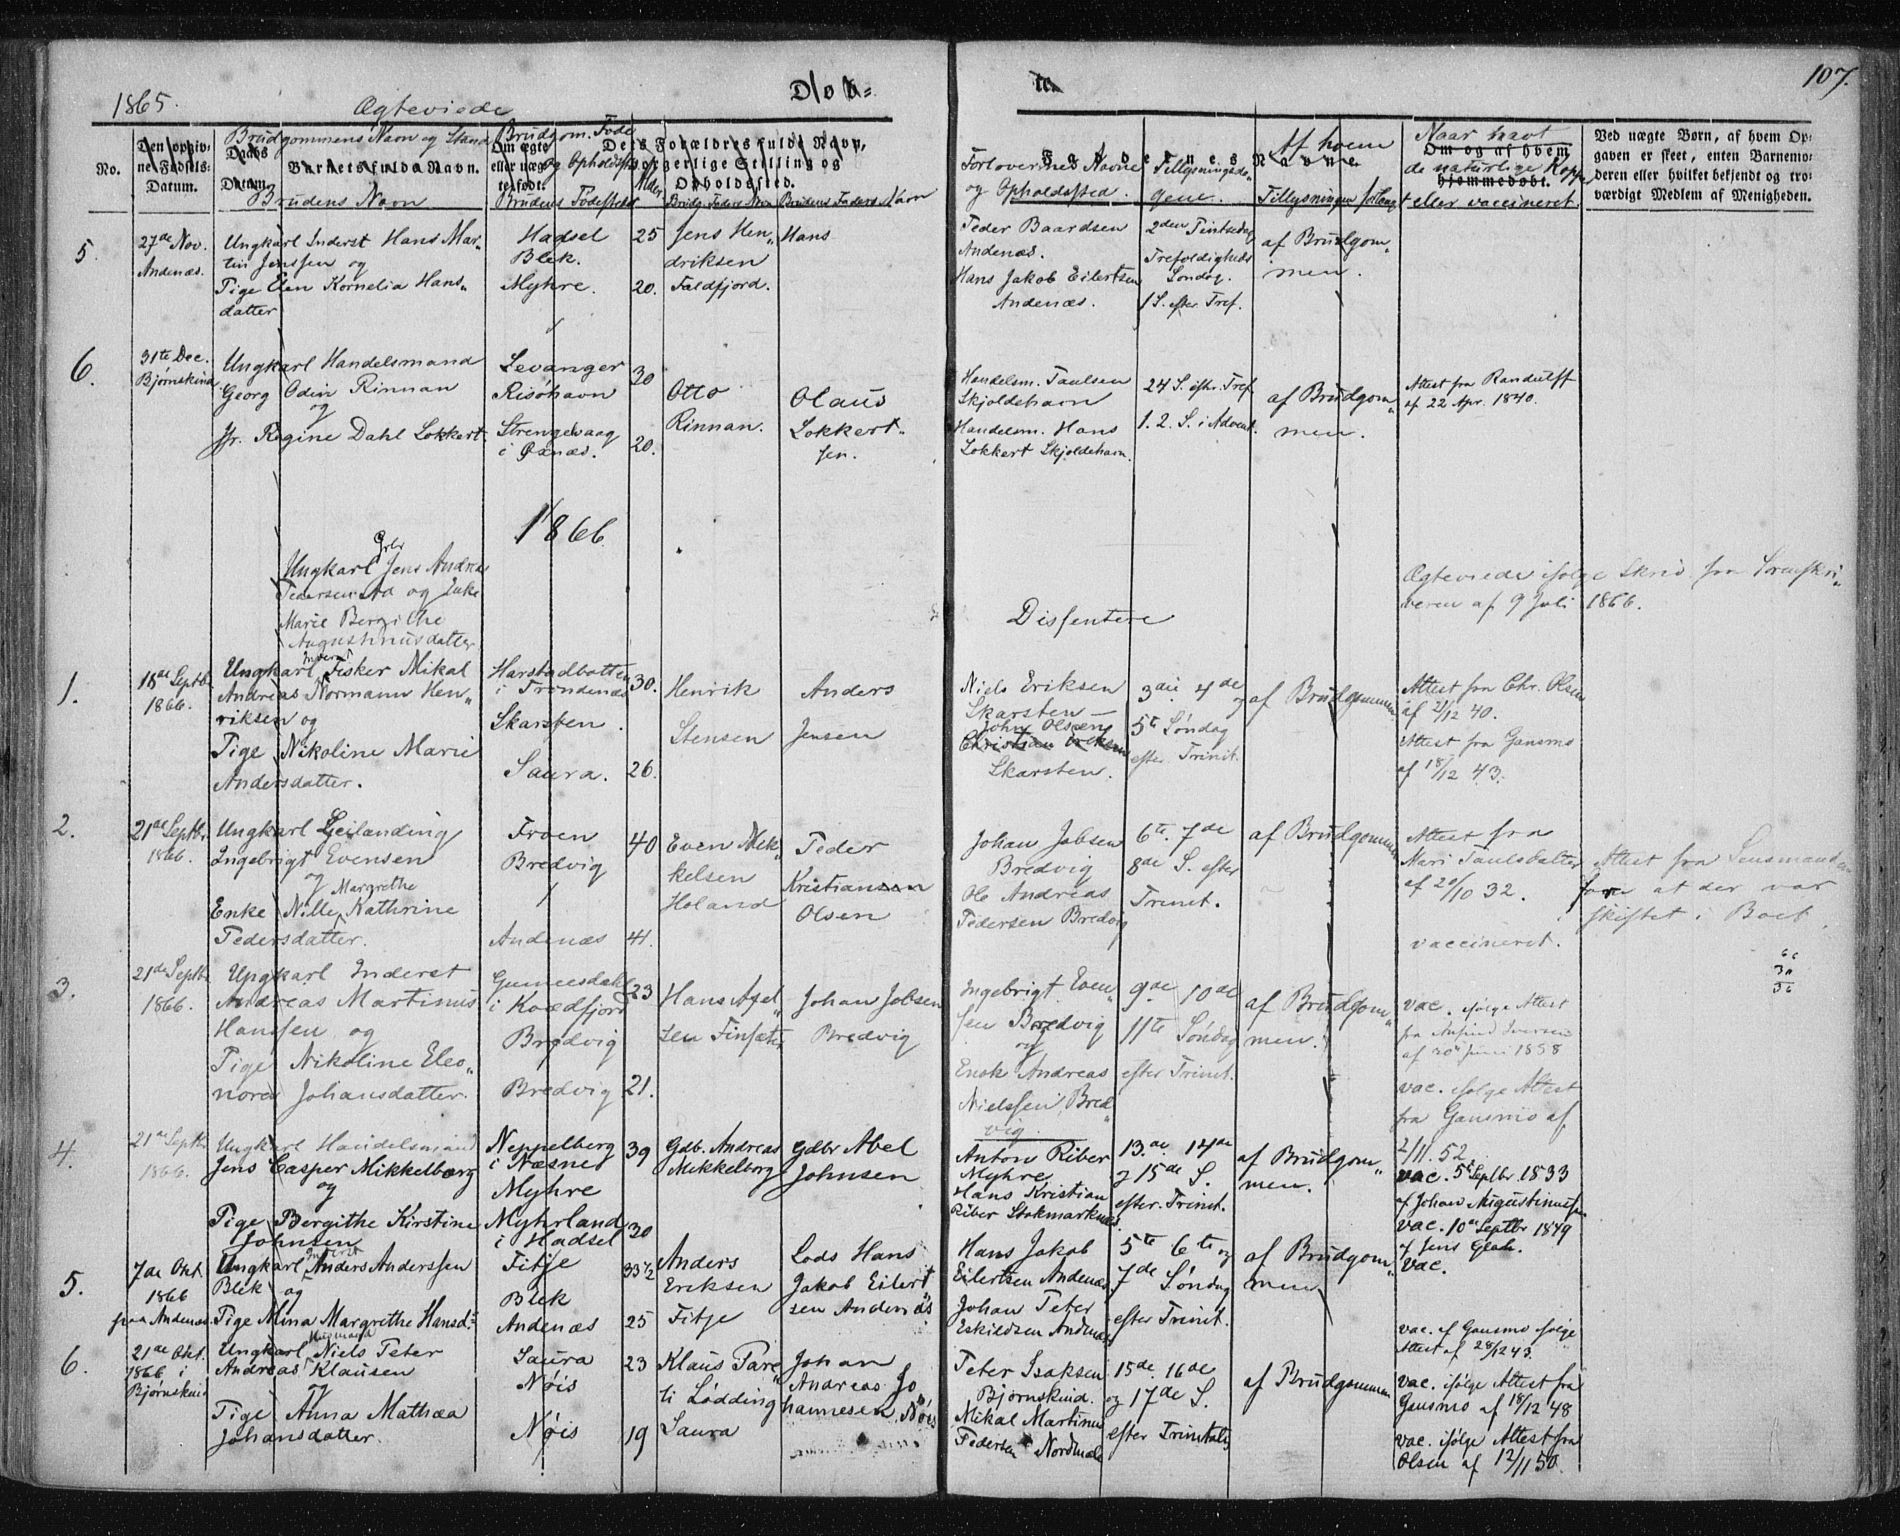 1865.
Ægteviede
Døb=
te.
107.
No.
Den opgiv-
ne Fødsels-
Datum.
Daabs
Datum.
Brudgommens Navn og Stand
Barnets fulde Navn.
Brudens Navn
Brudgom. Føde
og Opholdsst.
Om ægte
eller uæg-
te født.
Brudens Fødested
Alder
Ders Forældres fulde Navn,
borgerlige Stilling og
Opholdssted.
Brudg. Faders Navn
Brudens Faders Navn
Faddernes Navne
Forlovernes Navne
og Opholdssted.
Tillysningsda-
gene.
Af hvem
Tillysningen forlangt
Naar havt
Om og af hvem
de naturlige Kopper
hjemmedøbt.
eller vaccineret.
Ved uægte Børn, af hvem Op-
gaven er skeet, enten Barnemo-
deren eller hvilket bekjendt og tro-
værdigt Medlem af Menigheden.
5.
27de Nov.
Andenæs.
Ungkarl Inderst Hans Mar-
tin Jenssen og
Pige Elen Kornelia Hans-
datter
Hadsel
Blek.
Myhre.
25
20.
Jens Hen-
driksen
Hans
Peder Baardsen
Andenæs.
Hans Jakob Eilertsen
Andenæs.
2den Pintsedag
Trefoldigheds
Søndag.
1 S. efter Tref.
af Brudgom-
men.
6.
31te Dec.
Bjørnskind
Ungkarl Handelsmand
Georg Odin Rinnan
og
Jfr. Regine Dahl Lokkert
Levanger
Risøhavn
Strengelvaag
i Øxnæs.
30
20.
Otto
Rinnan.
Olaus
Lokkert-
sen.
Handelsm. Paulsen
Skjoldehavn
Handelsm. Hans
Lokkert Skjoldehavn.
24 S. efter Tref
1. 2. S. i Advent.
af Brudgom-
men.
Attest fra Randulff
af 22 Apr. 1840.
1866
Ungkarl Jens Andreas
Pedersen og Enke
Marie Bergithe
Augustinusdatter
Dissentere
Ægteviede ifølge Skriv fra Sorenskri-
veren af 9 Juli 1866.
1.
Septb.
1866.
Inderst
Ungkarl Fisker Mikal
Andreas Normann Hen-
riksen og
Pige Nikoline Marie
Andersdatter.
Harstadbotten
i Trondenæs
Skarsten.
Saura.
30.
26.
Henrik
Stensen
Anders
Jensen
Niels Eriksen
Skarsten
John Olsen
Skarsten.
3die 4de og
5te Søndag
efter Trinit.
af Brudgommen
Attest fra Chr. Olsen
af 21/12 40.
Attest fra Gansmo
af 18/12 43.
2.
21de Septb.
1866.
Ungkarl Leilænding
Ingebrigt Evensen
og
Margrethe
Enke Nille Kathrine
Pedersdatter.
Froen
Bredvig
Andenæs
40
41.
Even Mik-
kelsen
Holand
Peder
Kristiansen
Olsen
Johan Jobsen
Bredvig
Ole Andreas
Pedersen Bredvig
6te 7de
8de S. efter
Trinit.
af Brudgommen
Attest fra
Mari Paulsdatter
af 20/10 32.
vaccineret.
Attest fra Lensmanden
for at der var
skiftet i Boet
3.
21de Septb.
1866.
Ungkarl Inderst
Andreas Martinus
Hanssen og
Pige Nikoline Eleo-
nore Johansdatter.
i Kvædfjord
Bredvig
Bredvig
23
21.
Hans Axel-
sen Finsæter
Johan Jobsen
Bredvig
Ingebrigt Even-
sen Bredvig
og
Enok Andreas
Nielssen Bred-
vig.
9de 10de
11te Søndag
efter Trinit.
af Brudgom-
men.
vac. ifølge Attest
fra Iversen
af 20de Juni 1858
vac. ifølge Attest
fra Gansmo af
2/11. 52.
4.
21de Septb.
1866.
Ungkarl Handelsmand
Jens Casper Mikkelborg
og
Pige Bergithe Kirstine
Johnsen
Neppelberg
i Næsne
Myhre
Myhrland
i Hadsel
39
30
Gdb. Andreas
Mikkelborg
Gdbr Abel
Johnsen
Anton Riber
Myhre
Hans Kristian
Riber Stokmarknæs
13de 14de
og 15de S.
efter Trinit.
af Brudgom-
men.
vac. 5te Septbr 1833
af Johan Augustinussen
vac. 10de Septbr 1849
af Jens
5.
7de Okt.
1866
paa Andenæs
Inderst
Ungkarl Anders Anderssen
Blek og
Pige Mina Margrethe Hansd.
Fitje
Blek
Andenæs
33 1/2
25
Anders
Eriksen
Fitje
Lods Hans
Jakob Eilert-
sen Andenæs
Hans Jakob
Eilertsen Andenæs
Johan Peter
Eskildsen Andenæs
5te 6te og
7de Søndag
efter Trinit.
af Brudgom-
men
vac.
vac. af Gansmo ifølge
Attest af 28/12 43.
6.
21de Okt.
1866 i
Bjørnskind
Ungkarl Niels Peter
Andreas Klausen
og
Pige Anna Mathea
Johansdatter.
Saura
Nøis
Nøis
23
19
Klaus Pare-
li Lødding
Saura
Johan
Andreas Jo-
hannesen Nøis
Peter Isaksen
Bjørnskind.
Mikal Martinus
Pedersen Nordmela
15de 16de
og 17de S.
efter Trinitatis
af Brudgommen
vac. ifølge Attest fra
Gansmo af 18/12 48
vac. ifølge Attest fra
Olsen af 12/11 50.